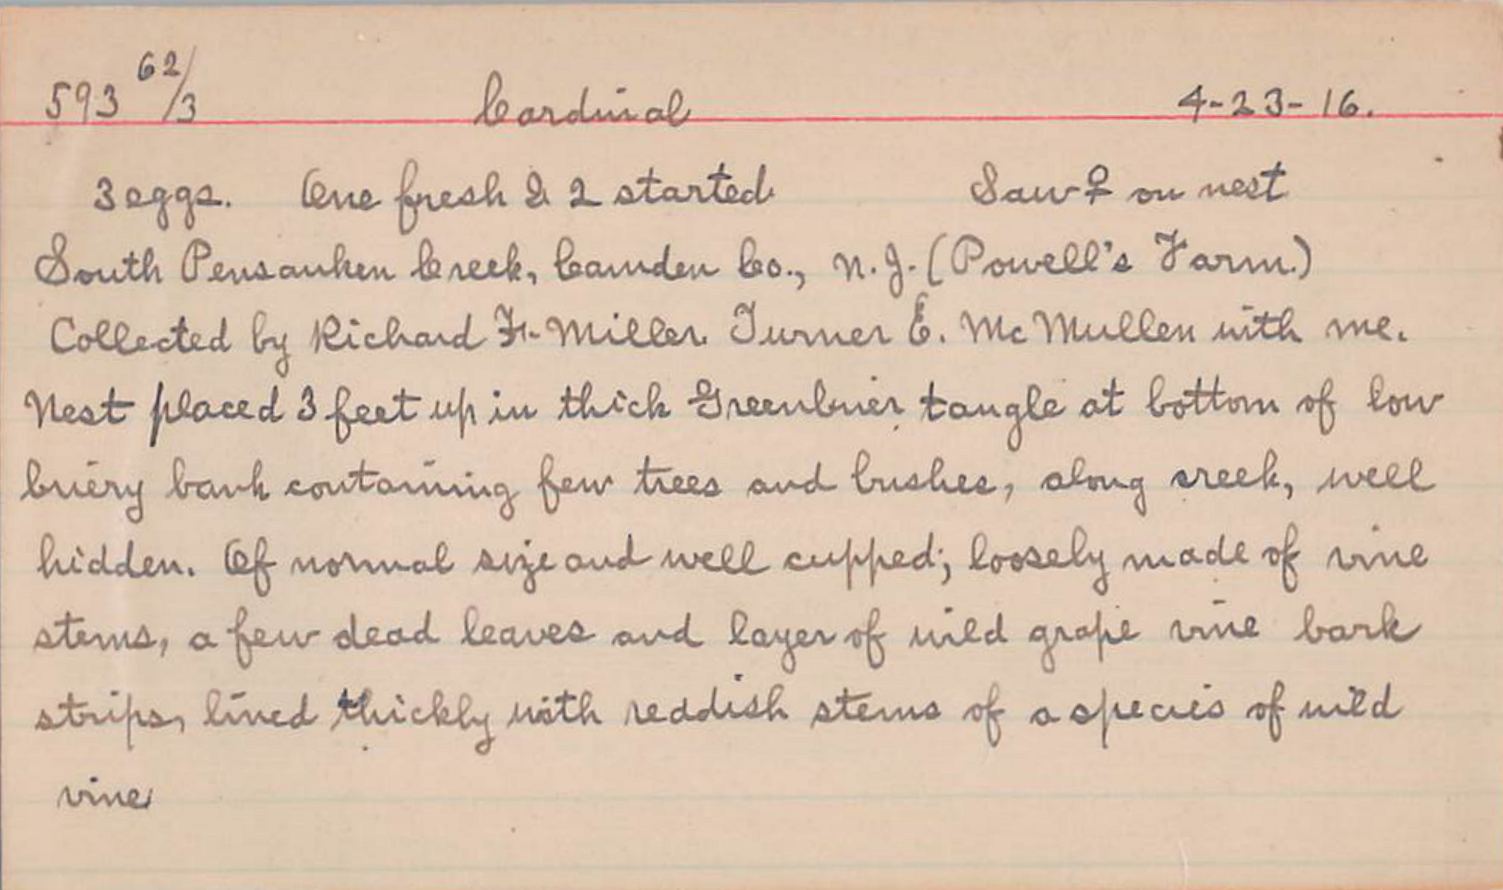 593 62/3 Cardinal 4-23-16.
3 eggs. One fresh & 2 started Saw ♀ on nest
South Pensauken Creek, Camden Co., N.J. (Powell's Farm.)
Collected by Richard F. Miller. Turner E. McMullen with me.
Nest placed 3 feet up in thick Greenbrier tangle at bottom of low
briery bank containing few trees and bushes, along creek, well
hidden. Of normal size and well cupped; loosely made of vine
stems, a few dead leaves and layer of wild grape vine bark
strips, lined thickly with reddish stems of a species of wild
vine